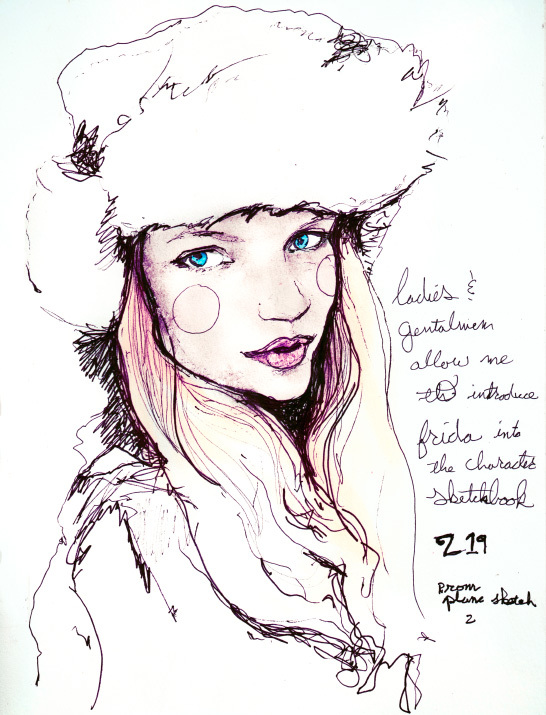 ladies &
gentalmen
allow me
to introduce
frida into
the character
sketchbook
219
From
plane sketch
2